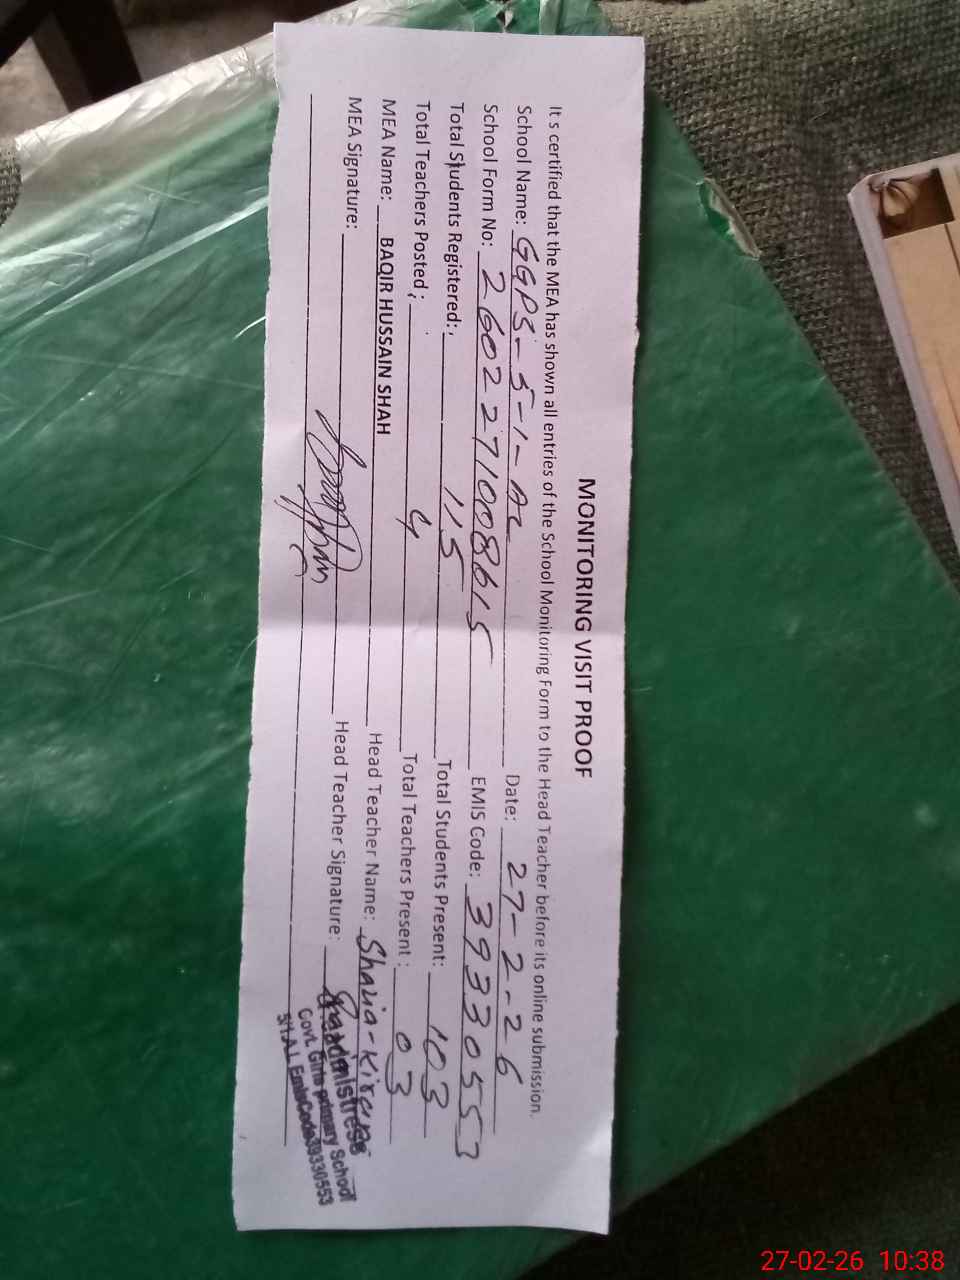 MONITORING VISIT PROOF
It s certified that the MEA has shown all entries of the School Monitoring Form to the Head Teacher before its online submission.
School Name: GGPS-5-1-AL Date: 27-2-26
School Form No: 2602271008615 EMIS Code: 39330553
Total Students Registered: 115 Total Students Present: 103
Total Teachers Posted: 4 Total Teachers Present: 03
MEA Name: BAQIR HUSSAIN SHAH Head Teacher Name: Shazia-Kiran
MEA Signature: Head Teacher Signature:
Headmistress
Govt. Girls primary School
5/1.A.L EmisCode39330553
27-02-26 10:38